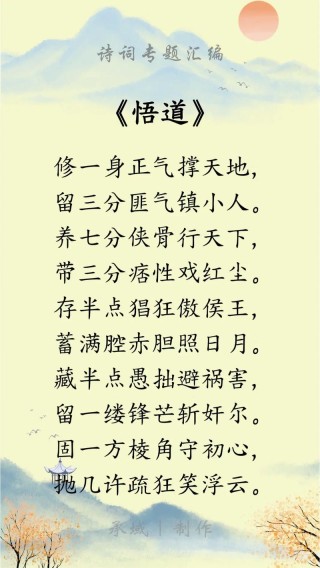 诗词专题汇编
《悟道》
修一身正气撑天地，
留三分匪气镇小人。
养七分侠骨行天下，
带三分痞性戏红尘。
存半点猖狂傲侯王，
蓄满腔赤胆照日月。
藏半点愚拙避祸害，
留一缕锋芒斩奸尔。
固一方棱角守初心，
抛几许疏狂笑浮云。
承城｜制作